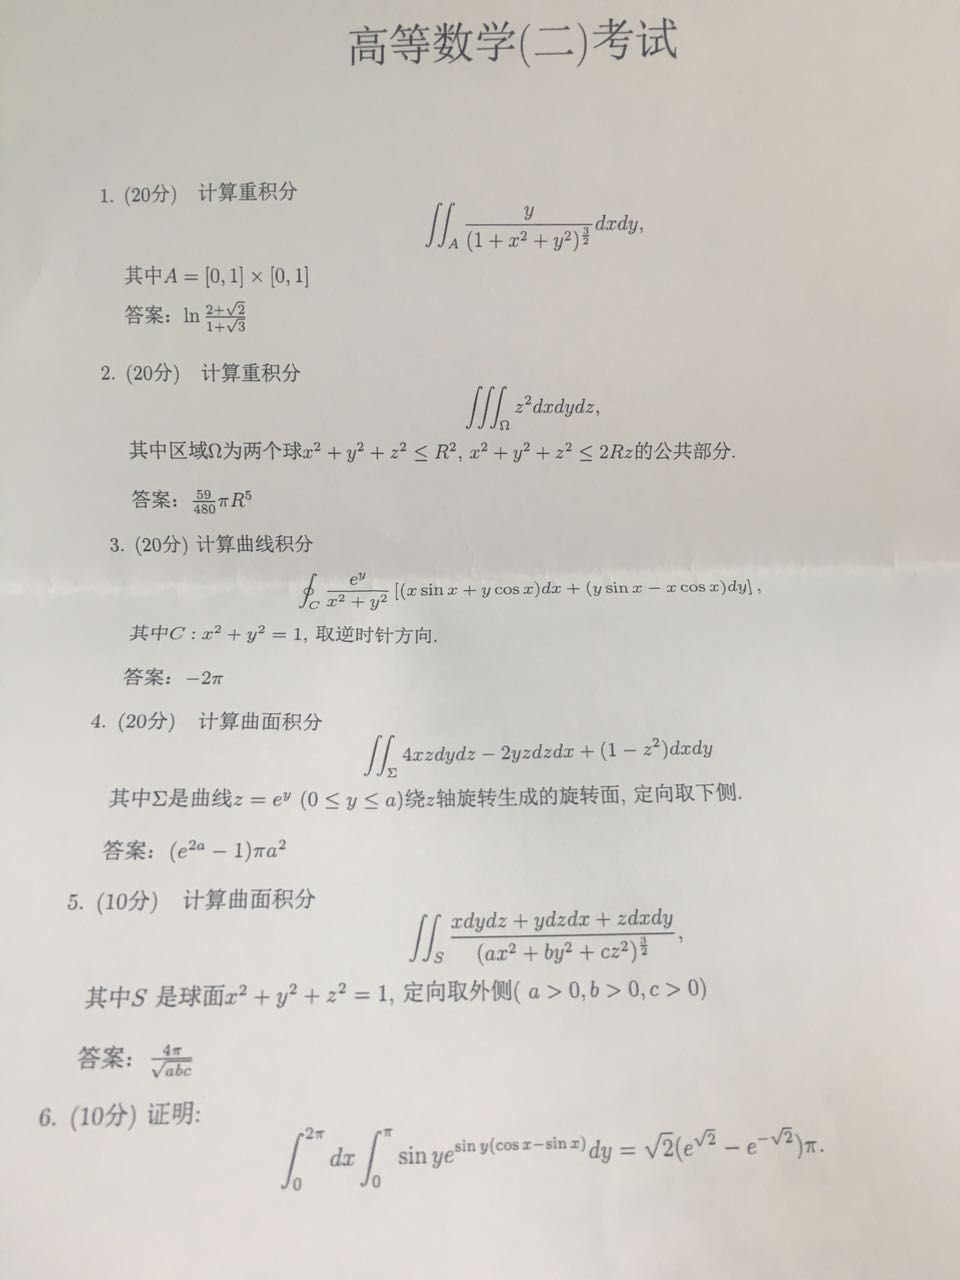 高等数学(二)考试
1. (20分) 计算重积分
∬_A y/(1 + x² + y²)^{3/2} dxdy,
其中A = [0, 1] × [0, 1]
答案: ln (2+√2)/(1+√3)
2. (20分) 计算重积分
∭_Ω z²dxdydz,
其中区域Ω为两个球x² + y² + z² ≤ R², x² + y² + z² ≤ 2Rz的公共部分.
答案: 59/480 πR⁵
3. (20分) 计算曲线积分
∮_C e^y/(x² + y²) [(x sin x + y cos x)dx + (y sin x − x cos x)dy] ,
其中C : x² + y² = 1, 取逆时针方向.
答案: −2π
4. (20分) 计算曲面积分
∬_Σ 4xzdydz − 2yzdzdx + (1 − z²)dxdy
其中Σ是曲线z = e^y (0 ≤ y ≤ a)绕z轴旋转生成的旋转面, 定向取下侧.
答案: (e^{2a} − 1)πa²
5. (10分) 计算曲面积分
∬_S (xdydz + ydzdx + zdxdy)/(ax² + by² + cz²)^{3/2},
其中S 是球面x² + y² + z² = 1, 定向取外侧( a > 0, b > 0, c > 0)
答案: 4π/√abc
6. (10分) 证明:
∫_0^{2π} dx ∫_0^π sin ye^{sin y(cos x−sin x)}dy = √2(e^{√2} − e^{−√2})π.